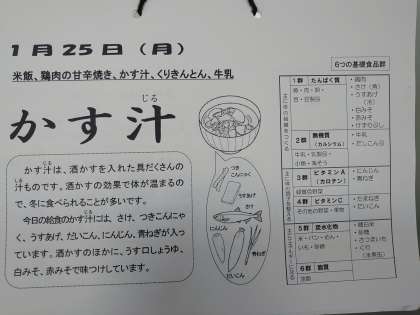 1月25日（月）
米飯、鶏肉の甘辛焼き、かす汁、くりきんとん、牛乳
かす汁
じる
かす汁は、酒かすを入れた具だくさんの
汁ものです。酒かすの効果で体が温まるの
で、冬に食べられることが多いです。
今日の給食のかす汁には、さけ、つきこんにゃ
く、うすあげ、だいこん、にんじん、青ねぎが入
っています。酒かすのほかに、うす口しょうゆ、
白みそ、赤みそで味つけしています。
つき
こんにゃく
うすあげ
さけ
にんじん
青ねぎ
だいこん
6つの基礎食品群
1群 たんぱく質
魚・肉・卵・
豆・豆製品
・鶏肉
・さけ（角）
・うすあげ
・白みそ
・赤みそ
2群 無機質
（カルシウム）
牛乳・乳製品・
小魚・海そう
・牛乳
・だしこんぶ
3群 ビタミンA
（カロテン）
緑黄色野菜
・にんじん
・青ねぎ
4群 ビタミンC
その他の野菜・果物
・だいこん
5群 炭水化物
米・パン・めん・
いも・砂糖
・精白米
・砂糖
・さつまいも
・くり
6群 脂質
油脂